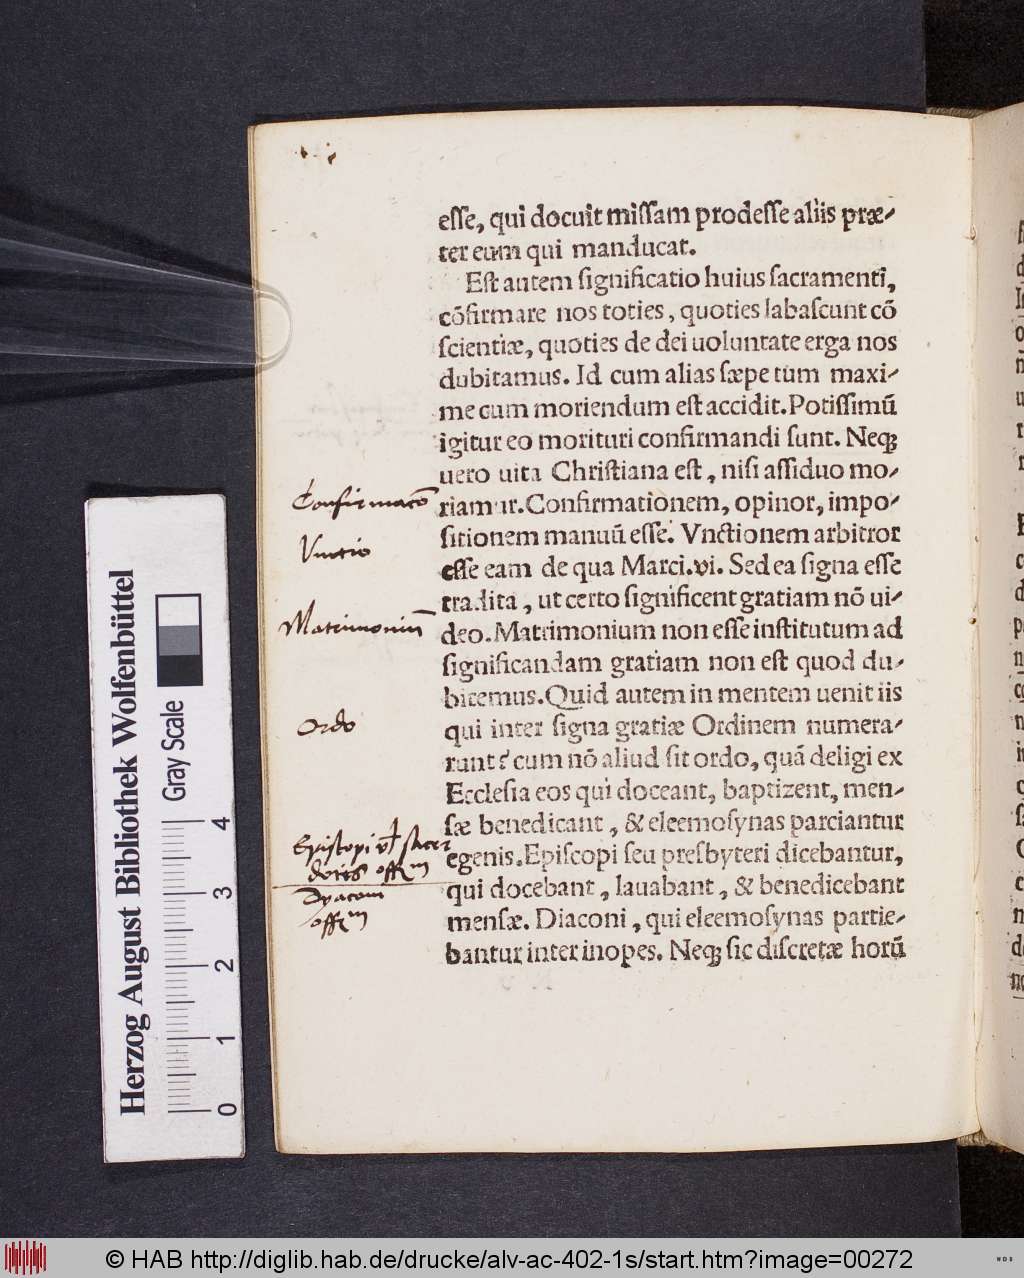 esse, qui docuit missam prodesse aliis præ-
ter eum qui manducat.
Est autem significatio huius sacramenti,
cōfirmare nos toties, quoties labascunt cō
scientiæ, quoties de dei uoluntate erga nos
dubitamus. Id cum alias sæpe tum maxi-
me cum moriendum est accidit. Potissimū
igitur eo morituri confirmandi sunt. Neqꝫ
uero uita Christiana est, nisi assiduo mo-
riamur. Confirmationem, opinor, impo-
sitionem manuū esse. Vnctionem arbitror
esse eam de qua Marci. vi. Sed ea signa esse
tradita, ut certo significent gratiam nō ui-
deo. Matrimonium non esse institutum ad
significandam gratiam non est quod du-
bitemus. Quid autem in mentem uenit iis
qui inter signa gratiæ Ordinem numera-
runt? cum nō aliud sit ordo, quā deligi ex
Ecclesia eos qui doceant, baptizent, men-
sæ benedicant, & eleemosynas parciantur
egenis. Episcopi seu presbyteri dicebantur,
qui docebant, lauabant, & benedicebant
mensæ. Diaconi, qui eleemosynas partie-
bantur inter inopes. Neqꝫ sic discretæ horū
Confirmatō
Vnctio
Matrimoniū
Ordo
Episcopi vl sacer
dotis offm
Dyaconi
offm
Herzog August Bibliothek Wolfenbüttel
Gray Scale
0 1 2 3 4
© HAB http://diglib.hab.de/drucke/alv-ac-402-1s/start.htm?image=00272